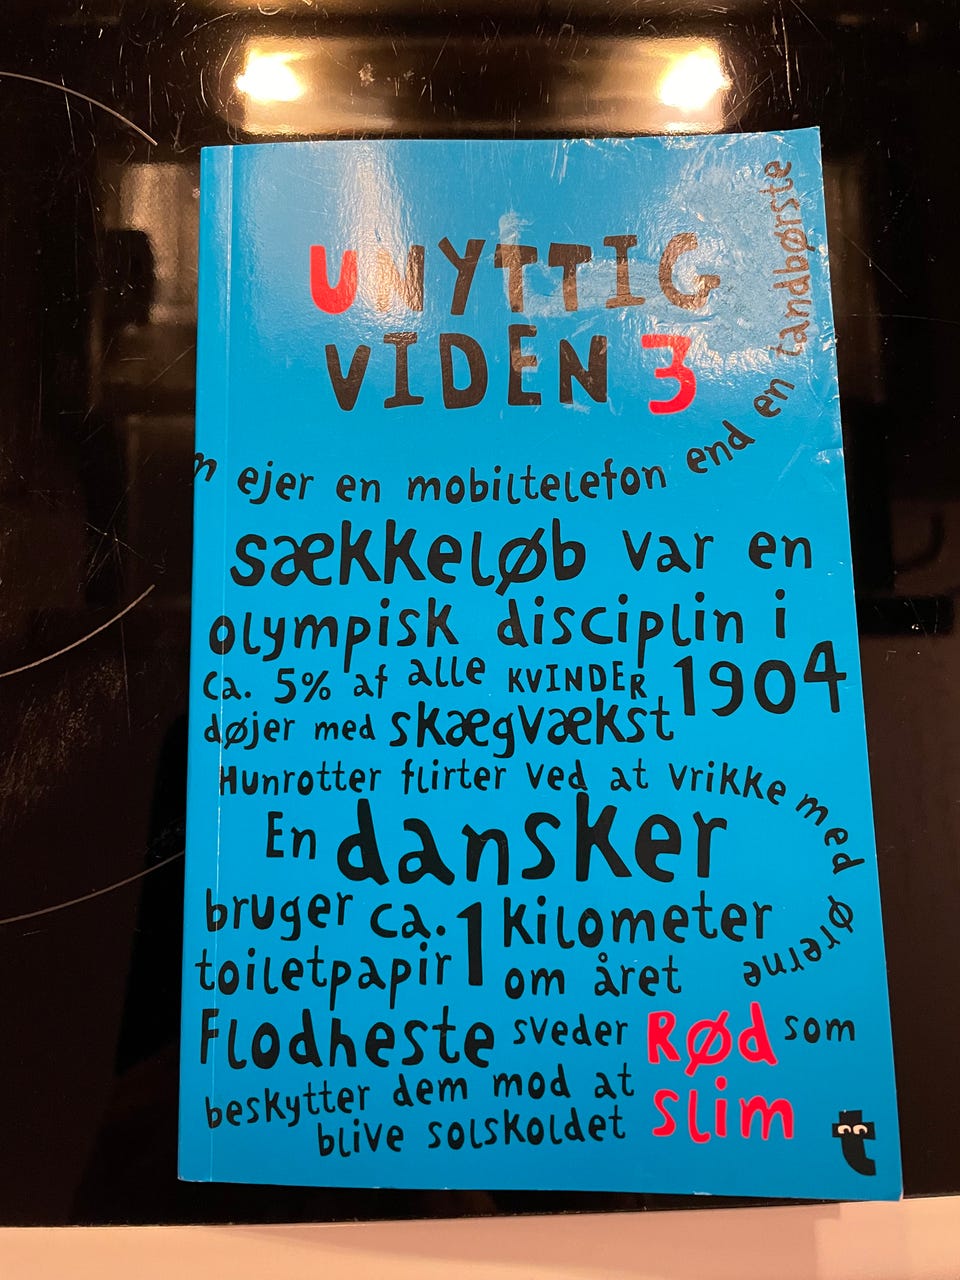 UNYTTIG
VIDEN 3
ejer en mobiltelefon end en tandbørste
sækkeløb var en
olympisk disciplin i
1904
ca. 5% af alle KVINDER
døjer med skægvækst
Hunrotter flirter ved at vrikke med ørerne
En dansker
bruger ca. 1 kilometer
toiletpapir om året
Flodheste sveder RØD som
beskytter dem mod at SLIM
blive solskoldet
t